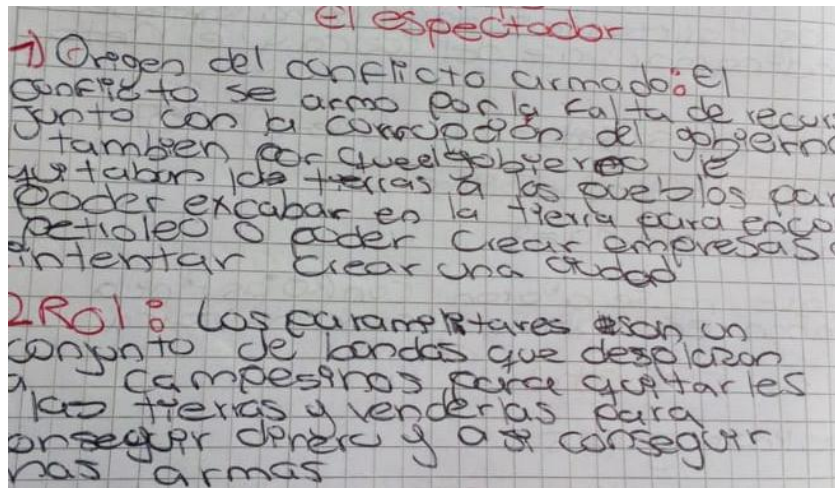 El espectador
1) Oregen del conflicto armado: El
conflicto se armo por la falta de recur
junto con la corrupción del gobierno
tambien por que el gobierno le
quitaban las tierras a los pueblos par
poder excabar en la tierra para enco
petroleo o poder crear empresas o
intentar crear una ciudad
2 Rol: Los paramilitares son un
conjunto de bandas que desplazan
a campesinos para quitarles
las tierras y venderlas para
onseguir dinero y asi conseguir
mas armas